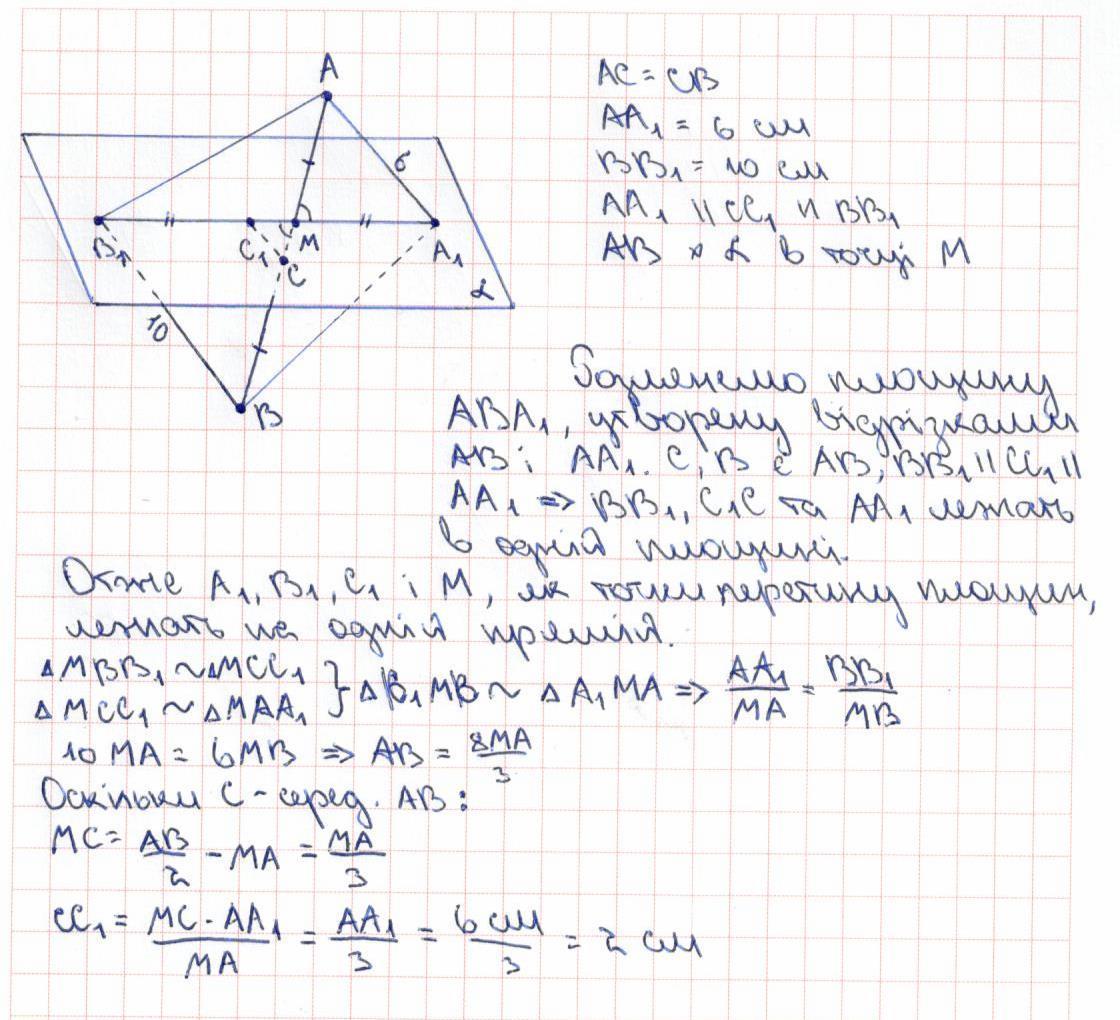 A
AC = CB
AA₁ = 6 см
6
BB₁ = 10 см
AA₁ || CC₁ || BB₁
B₁ C₁ M A₁
AB × α в точці M
C
α
10
B
Розглянемо площину
ABA₁, утворену відрізками
AB і AA₁. C, B ∈ AB, BB₁ || CC₁ ||
AA₁ => BB₁, C₁C та AA₁ лежать
в одній площині.
Отже A₁, B₁, C₁ і M, як точки перетину площин,
лежать на одній прямій.
△MBB₁ ~ △MCC₁
△MCC₁ ~ △MAA₁ } △B₁MB ~ △A₁MA => AA₁/MA = BB₁/MB
10 MA = 6MB => AB = 8MA/3
Оскільки C - серед. AB:
MC = AB/2 - MA = MA/3
CC₁ = MC · AA₁/MA = AA₁/3 = 6 см/3 = 2 см